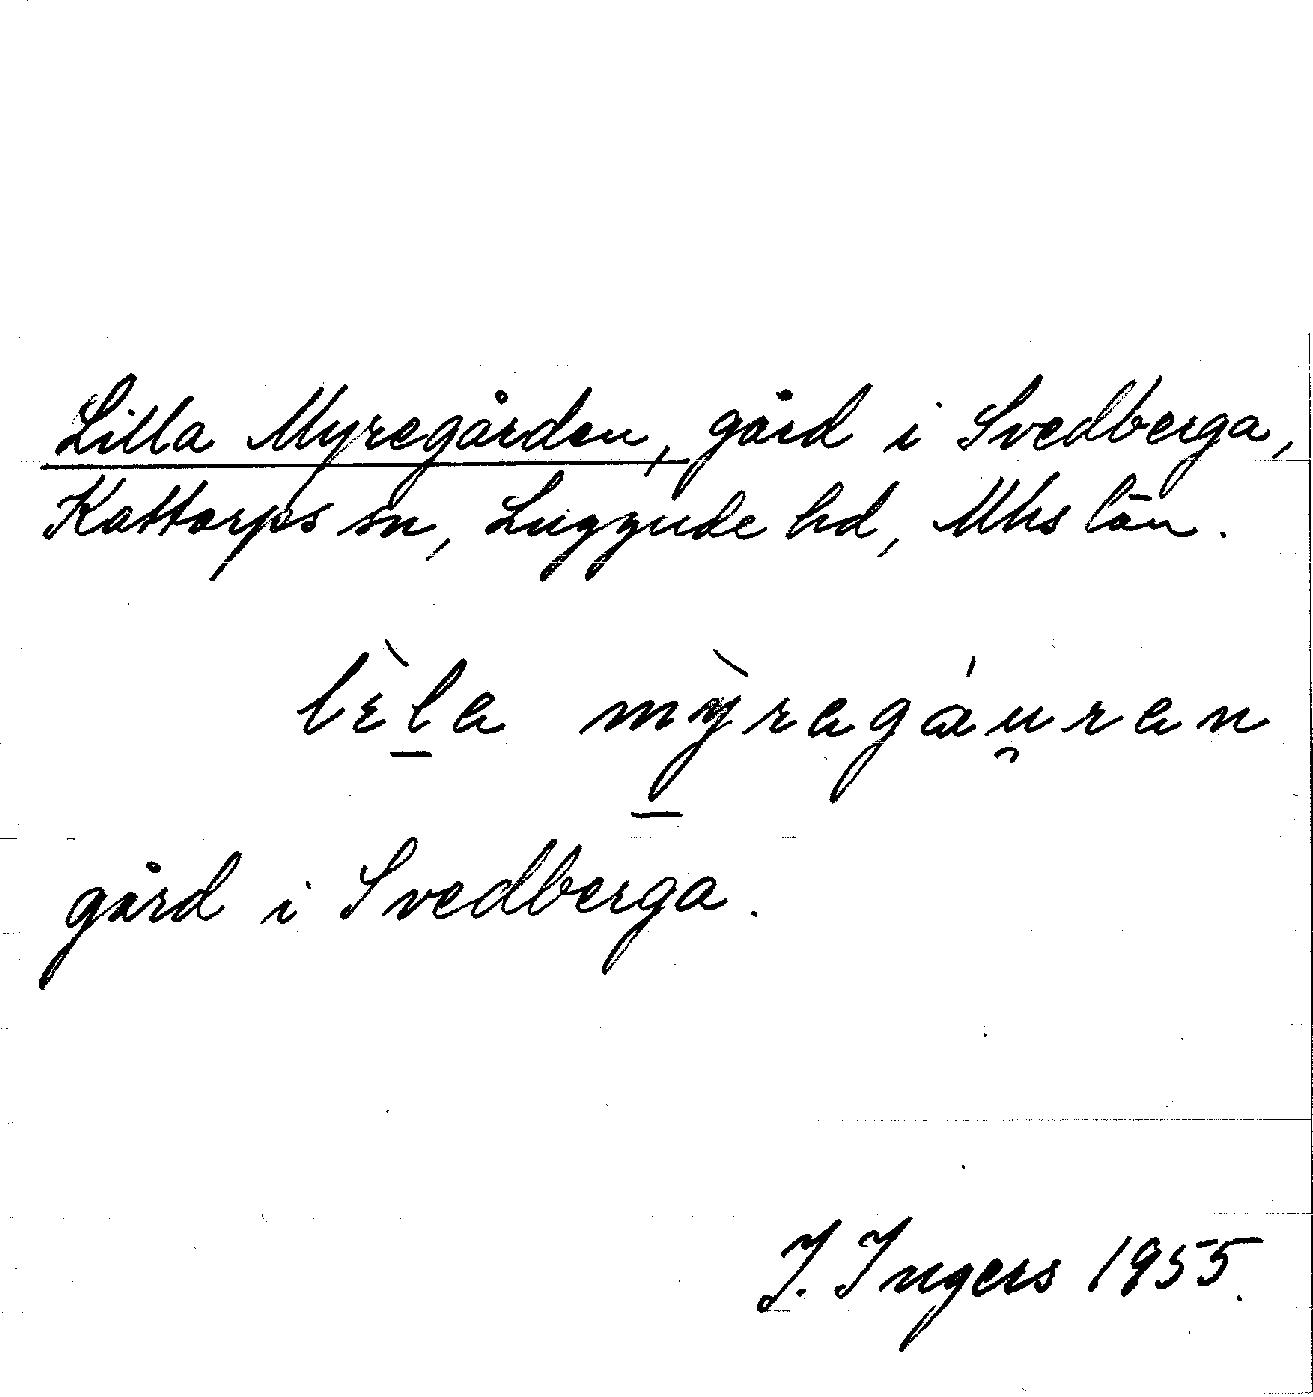 Lilla Myregården, gård i Svedberga,
Kattarps sn, Luggude hd, Mhs län.
lɛ̀l̠a mỳ̠ragáu̯ran
gård i Svedberga.
I. Ingers 1955.